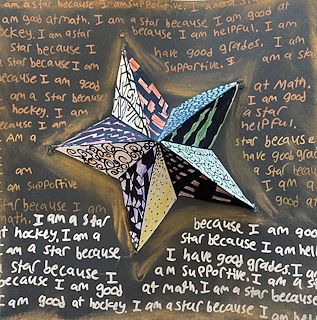 am a star because I am supportive. I am a star
good at math. I am a star because I am good at
hockey. I am a star because I am helpful. I am
star because I have good grades. I am
because I am supportive. I am a s
because I am good at Math.
am a star because I am good
hockey. I am a star
because I am helpful.
Am a star because
am good grad
I am supportive I am
star because I am good at
math. I am a star because I am good
at hockey. I am a star because I am hel
am a star because I have good grades. I am
star because I am supportive. I am a s
because I am good at math, I am a star because
am good at hockey. I am a star because I am